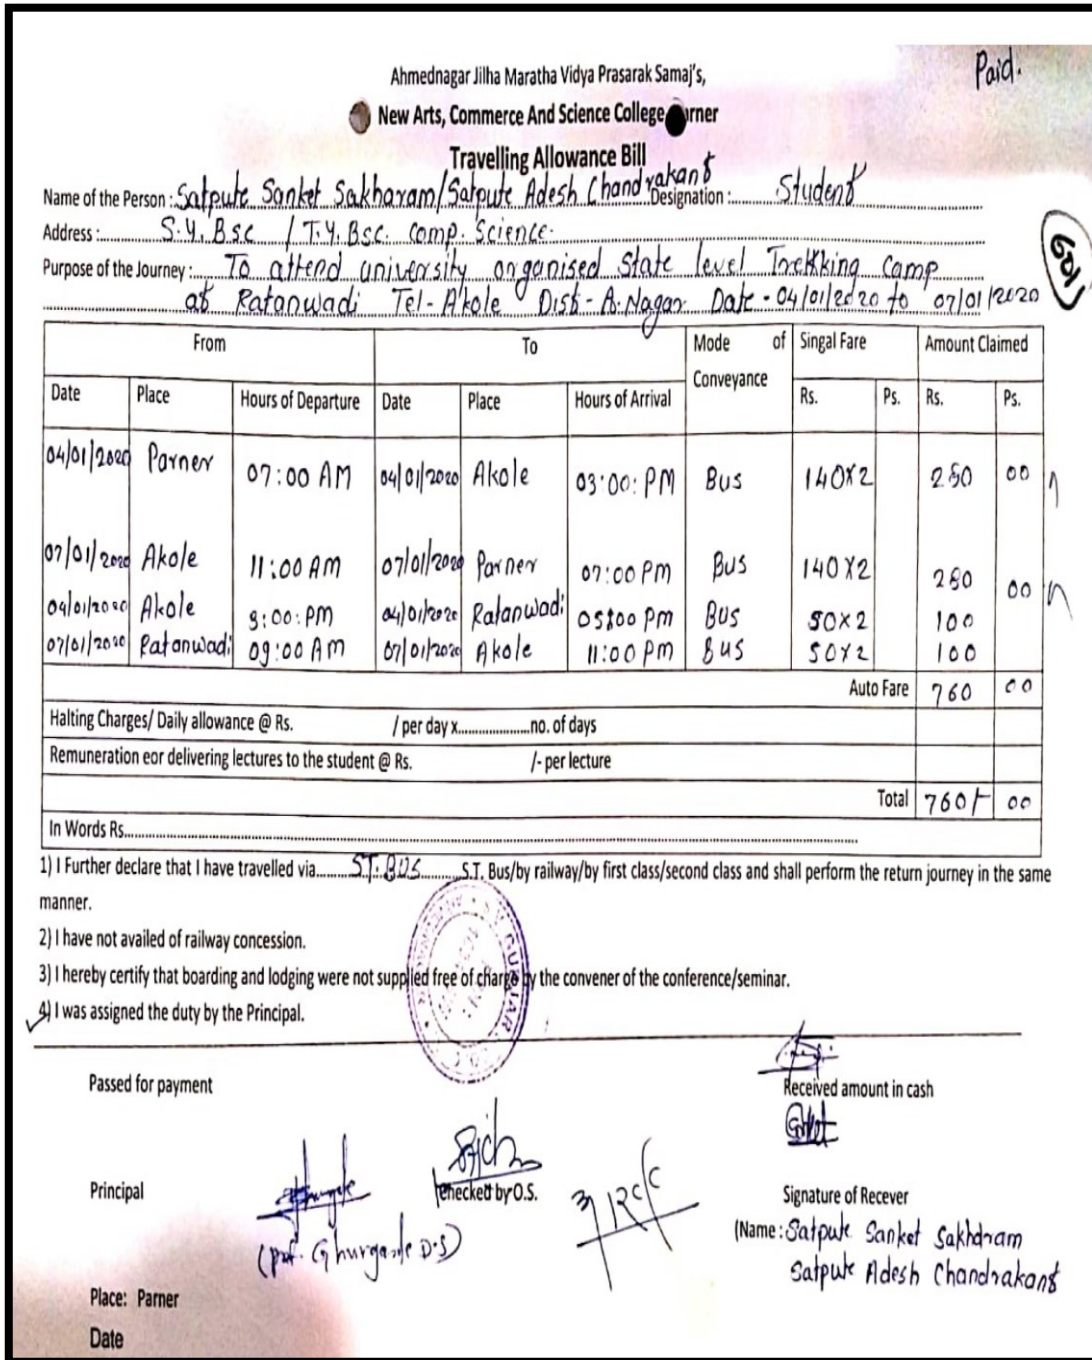 Paid.
Ahmednagar Jilha Maratha Vidya Prasarak Samaj's,
New Arts, Commerce And Science College rner
Travelling Allowance Bill
Name of the Person : Satpute Sanket Sakharam/Satpute Adesh Chandrakant Designation : Student
Address : S.Y. Bsc / T.Y. Bsc. Comp. Science.
Purpose of the Journey : To attend university organised State level Trekking Camp
at Ratanwadi Tel- Akole Dist- A.Nagar Date - 04/01/2020 to 07/01/2020
From To Mode of Conveyance Singal Fare Amount Claimed
Date Place Hours of Departure Date Place Hours of Arrival Rs. Ps. Rs. Ps.
04/01/2020 Parner 07:00 AM 04/01/2020 Akole 03:00: PM Bus 140X2 280 00
07/01/2020 Akole 11:00 AM 07/01/2020 Parner 07:00 PM Bus 140X2 280 00
04/01/2020 Akole 3:00: PM 04/01/2020 Ratanwadi 05:00 PM Bus 50X2 100
07/01/2020 Ratanwadi 09:00 AM 07/01/2020 Akole 11:00 PM Bus 50X2 100
Auto Fare 760 00
Halting Charges/ Daily allowance @ Rs. / per day x..................no. of days
Remuneration eor delivering lectures to the student @ Rs. /- per lecture
Total 760/- 00
In Words Rs.
1) I Further declare that I have travelled via........S.T. BUS..........S.T. Bus/by railway/by first class/second class and shall perform the return journey in the same
manner.
2) I have not availed of railway concession.
3) I hereby certify that boarding and lodging were not supplied free of charge by the convener of the conference/seminar.
4) I was assigned the duty by the Principal.
Passed for payment
Received amount in cash
Principal
Checked by O.S.
Signature of Recever
(Prof. Ghurgade D.S)
(Name : Satpute Sanket Sakharam
Satpute Adesh Chandrakant
Place: Parner
Date